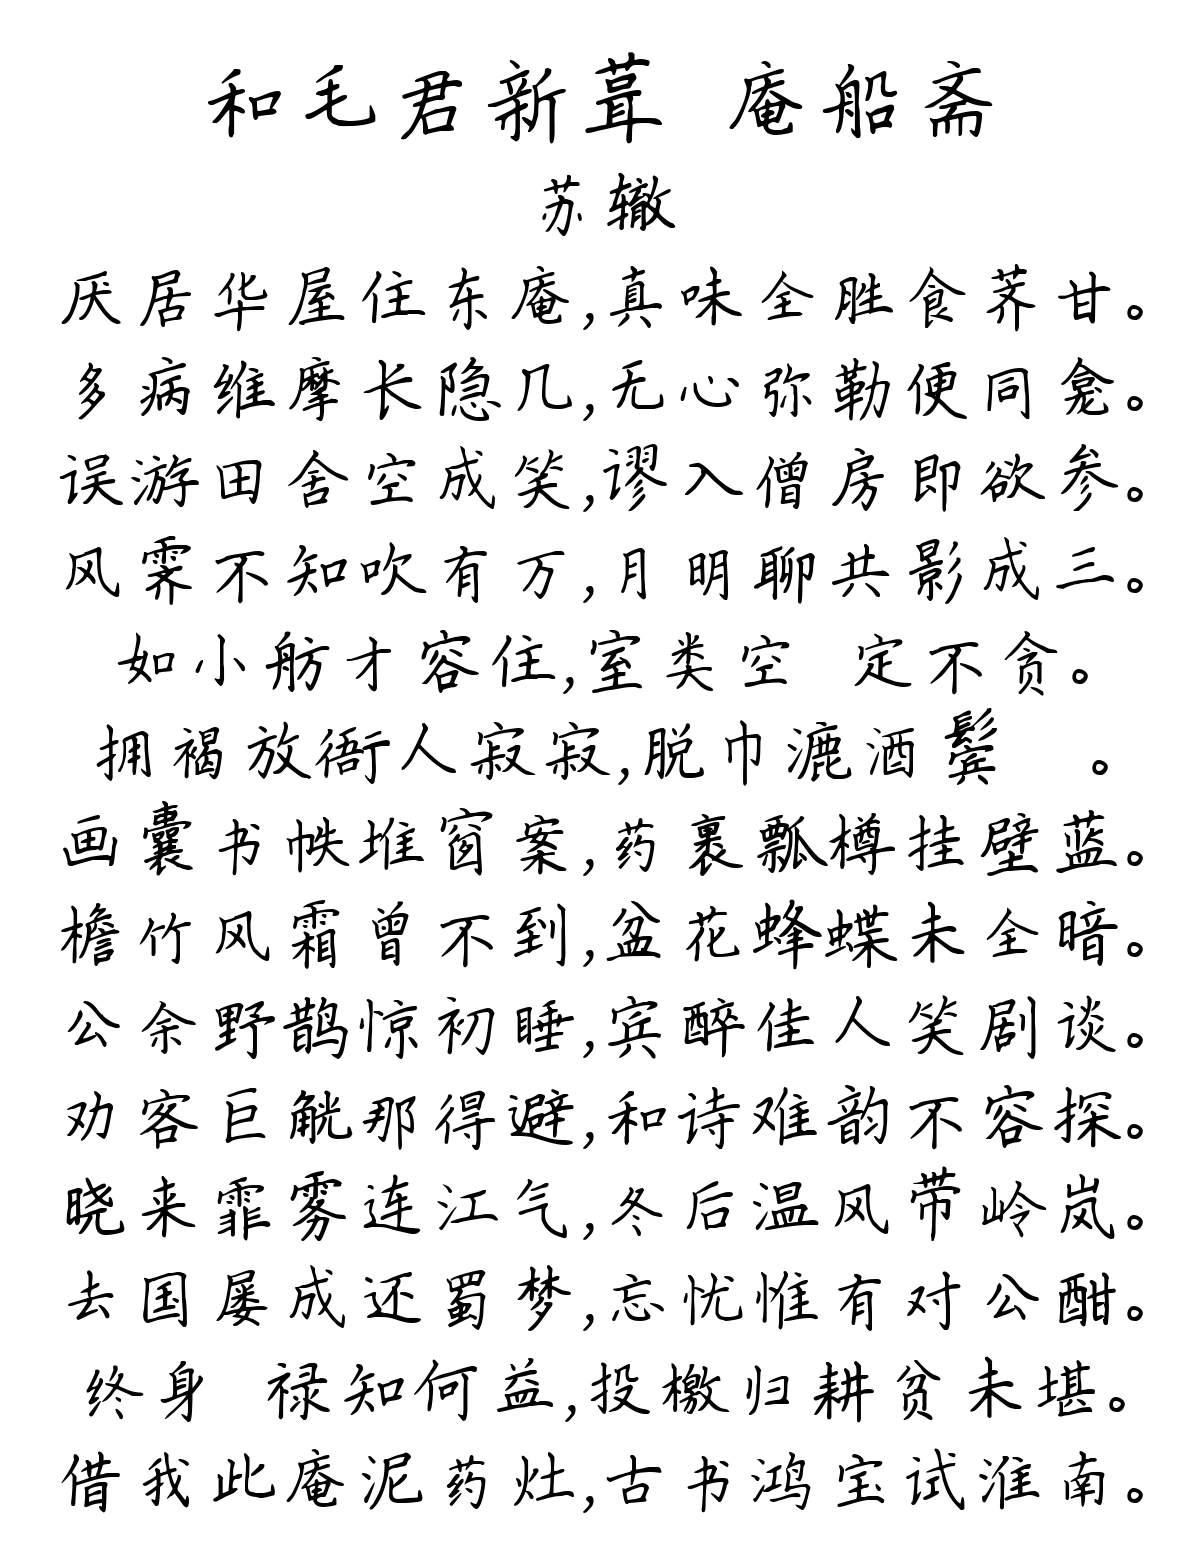 和毛君新葺 庵船斋
苏辙
厌居华屋住东庵,真味全胜食荠甘。
多病维摩长隐几,无心弥勒便同龛。
误游田舍空成笑,谬入僧房即欲参。
风霁不知吹有万,月明聊共影成三。
如小舫才容住,室类空 定不贪。
拥褐放衙人寂寂,脱巾漉酒鬓 。
画囊书帙堆窗案,药裹瓢樽挂壁蓝。
檐竹风霜曾不到,盆花蜂蝶未全暗。
公余野鹊惊初睡,宾醉佳人笑剧谈。
劝客巨觥那得避,和诗难韵不容探。
晓来霏雾连江气,冬后温风带岭岚。
去国屡成还蜀梦,忘忧惟有对公酣。
终身 禄知何益,投檄归耕贫未堪。
借我此庵泥药灶,古书鸿宝试淮南。